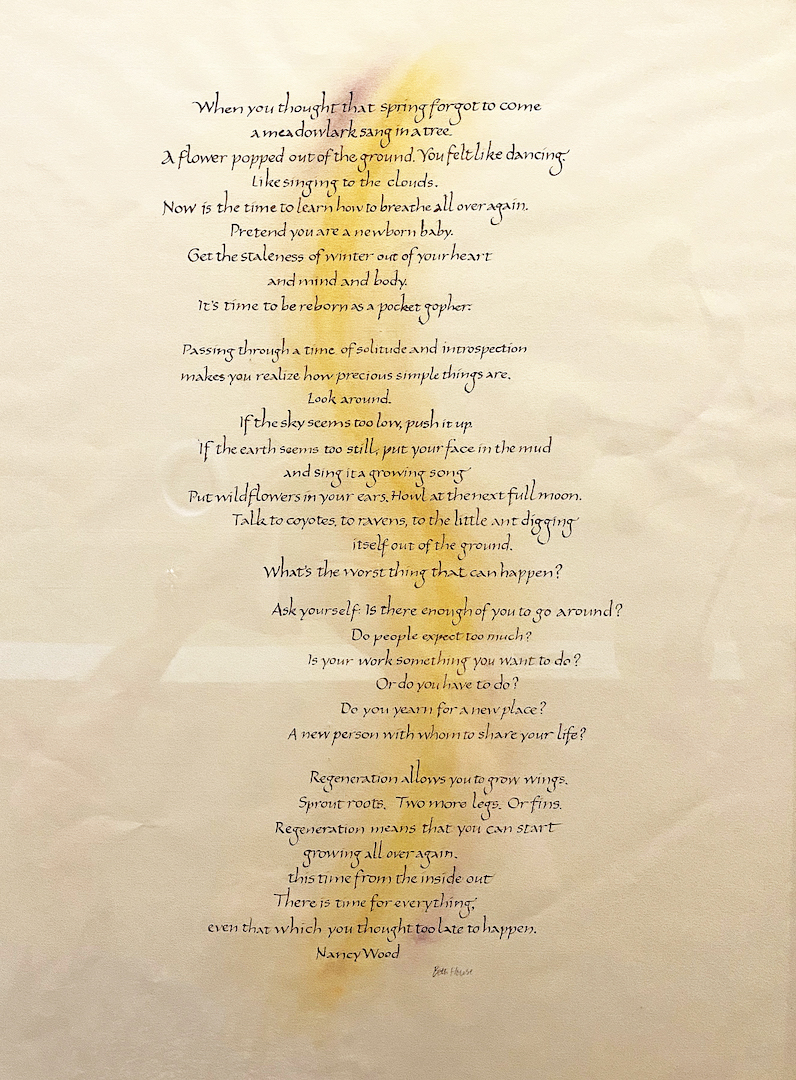 When you thought that spring forgot to come
a meadowlark sang in a tree.
A flower popped out of the ground. You felt like dancing.
Like singing to the clouds.
Now is the time to learn how to breathe all over again.
Pretend you are a newborn baby.
Get the staleness of winter out of your heart
and mind and body.
It's time to be reborn as a pocket gopher.
Passing through a time of solitude and introspection
makes you realize how precious simple things are.
Look around.
If the sky seems too low, push it up.
If the earth seems too still, put your face in the mud
and sing it a growing song
Put wildflowers in your ears. Howl at the next full moon.
Talk to coyotes, to ravens, to the little ant digging
itself out of the ground.
What's the worst thing that can happen?
Ask yourself: Is there enough of you to go around?
Do people expect too much?
Is your work something you want to do?
Or do you have to do?
Do you yearn for a new place?
A new person with whom to share your life?
Regeneration allows you to grow wings.
Sprout roots. Two more legs. Or fins.
Regeneration means that you can start
growing all over again.
this time from the inside out
There is time for everything,
even that which you thought too late to happen.
Nancy Wood
Beth House